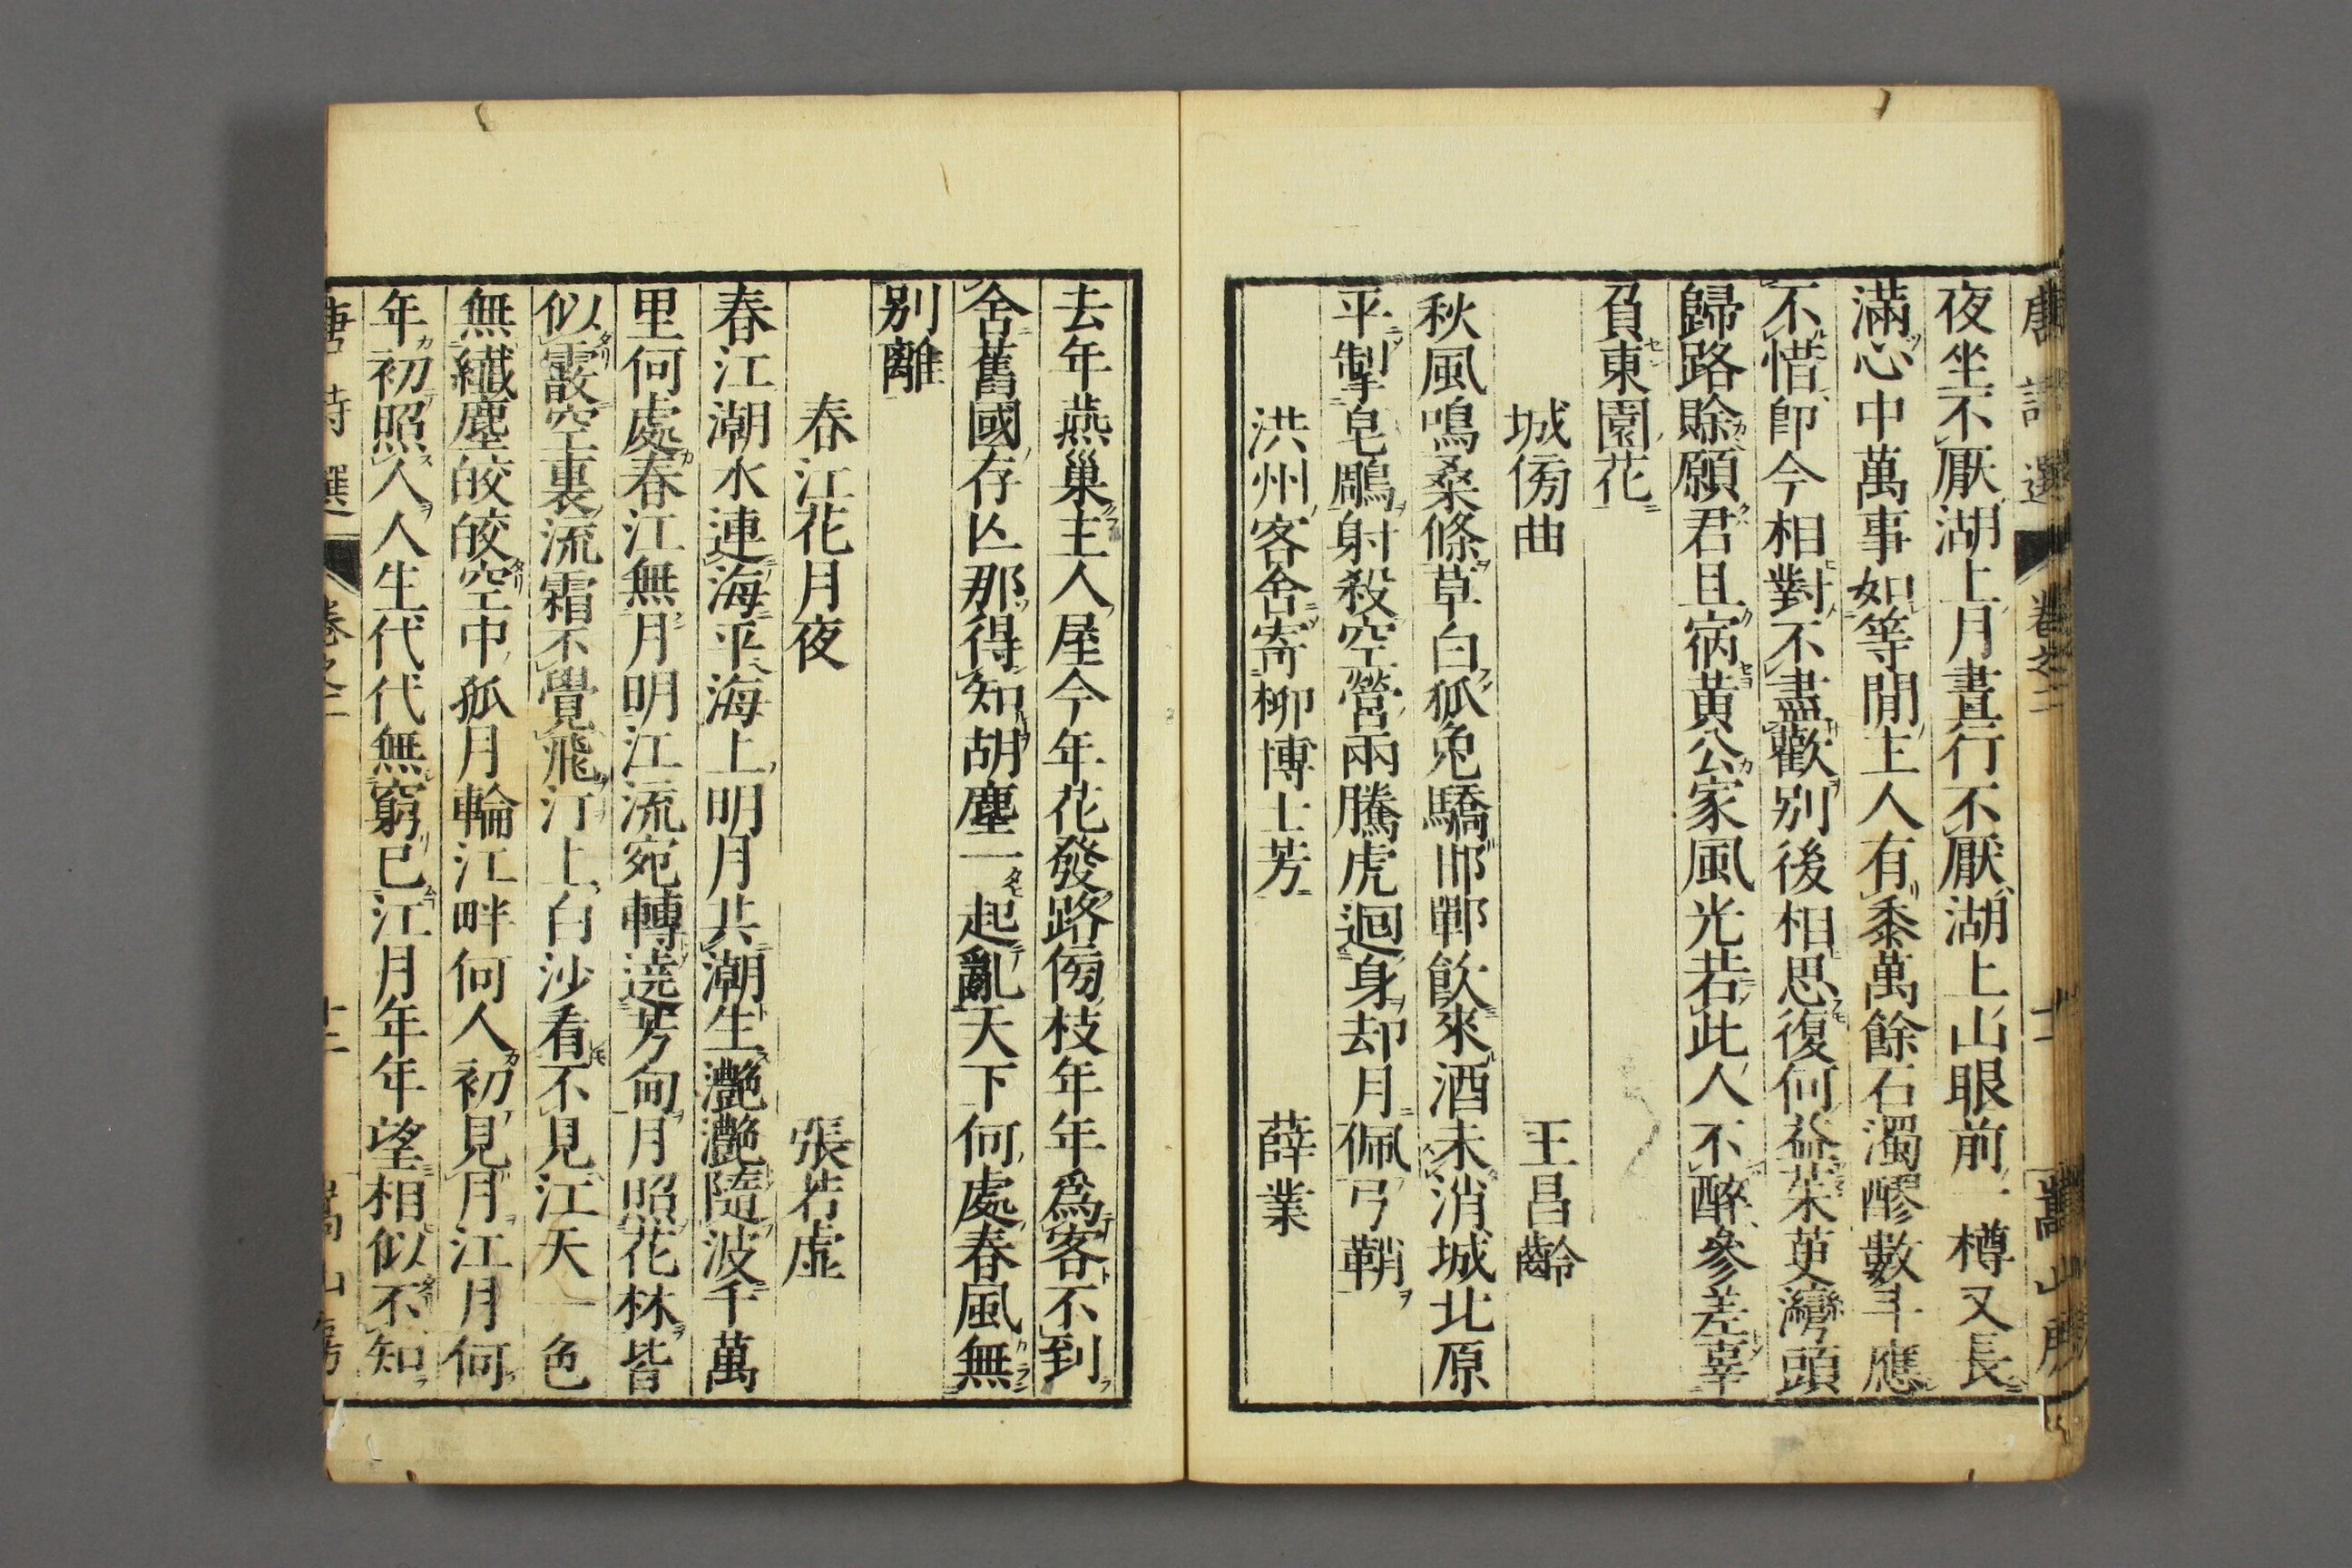 唐詩選 卷之二 十一 嵩山房
夜坐不厭湖上月晝行不厭湖上山眼前一樽又長
滿心中萬事如等閒主人有黍萬餘石濁醪數斗應
不惜卽今相對不盡歡別後相思復何益茱萸灣頭
歸路賖願君且宿黃公家風光若此人不醉參差辜
負東園花
城傍曲 王昌齡
秋風鳴桑條草白狐兔驕邯鄲飮來酒未消城北原
平掣皂鵰射殺空營兩騰虎迴身却月佩弓鞘
洪州客舍寄柳博士芳 薛業
去年燕巢主人屋今年花發路傍枝年年爲客不到
舍舊國存亾那得知胡塵一起亂天下何處春風無
別離
春江花月夜 張若虛
春江潮水連海平海上明月共潮生灩灩隨波千萬
里何處春江無月明江流宛轉遶芳甸月照花林皆
似霰空裏流霜不覺飛汀上白沙看不見江天一色
無纖塵皎皎空中孤月輪江畔何人初見月江月何
年初照人人生代代無窮已江月年年望相似不知
唐詩選 卷之二 十二 嵩山房